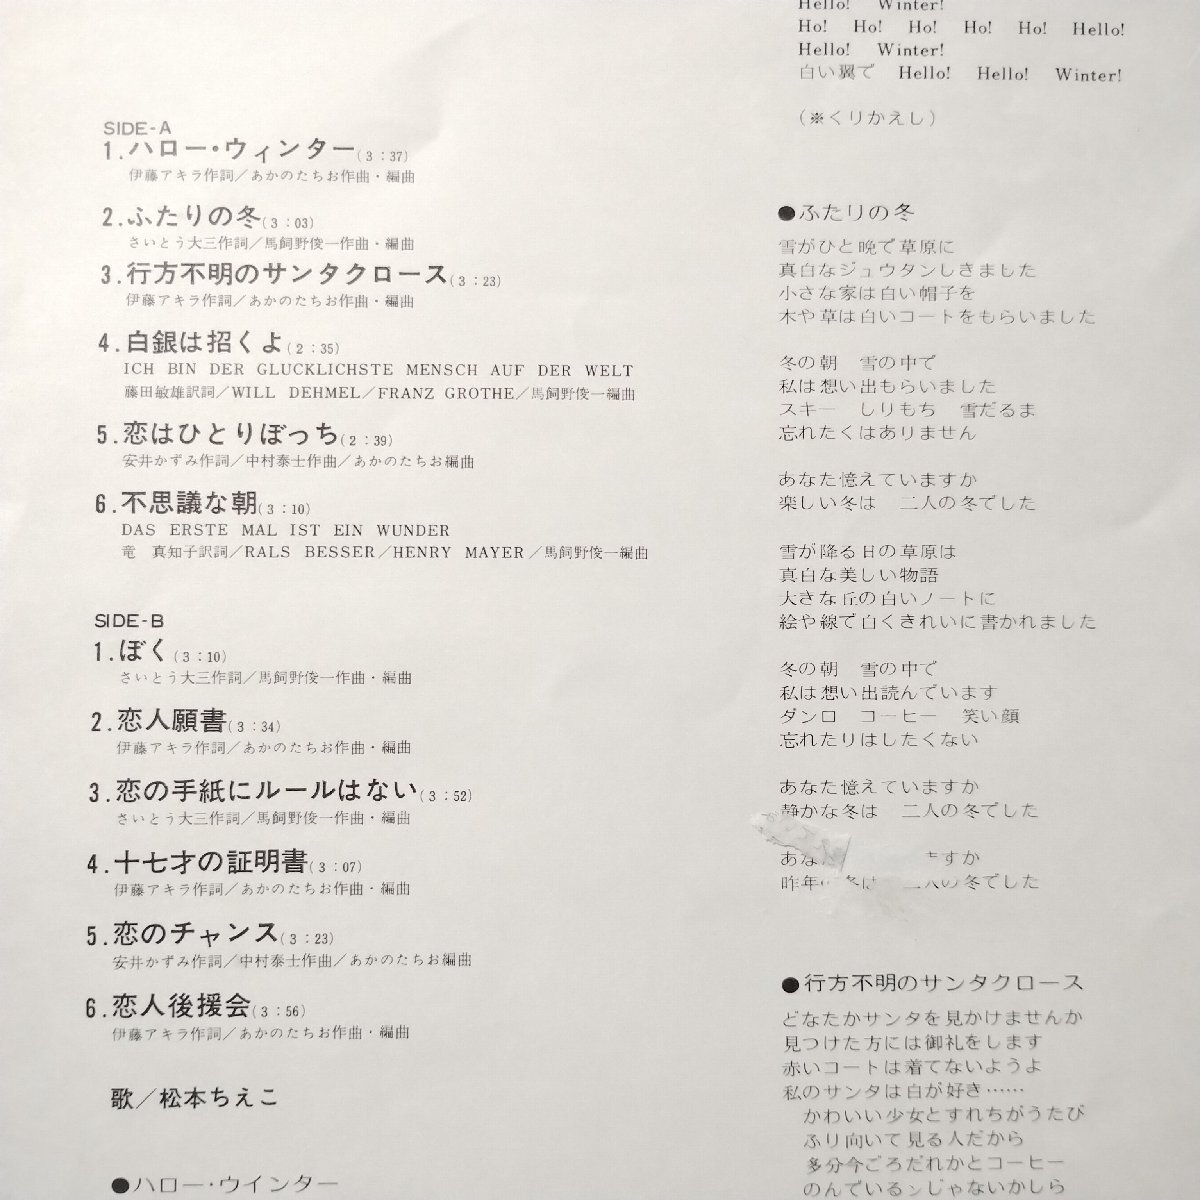 SIDE-A
1.ハロー・ウィンター(3:37)
伊藤アキラ作詞／あかのたちお作曲・編曲
2.ふたりの冬(3:03)
さいとう大三作詞／馬飼野俊一作曲・編曲
3.行方不明のサンタクロース(3:23)
伊藤アキラ作詞／あかのたちお作曲・編曲
4.白銀は招くよ(2:35)
ICH BIN DER GLUCKLICHSTE MENSCH AUF DER WELT
藤田敏雄訳詞／WILL DEHMEL／FRANZ GROTHE／馬飼野俊一編曲
5.恋はひとりぼっち(2:39)
安井かずみ作詞／中村泰士作曲／あかのたちお編曲
6.不思議な朝(3:10)
DAS ERSTE MAL IST EIN WUNDER
竜 真知子訳詞／RALS BESSER／HENRY MAYER／馬飼野俊一編曲
SIDE-B
1.ぼく(3:10)
さいとう大三作詞／馬飼野俊一作曲・編曲
2.恋人願書(3:34)
伊藤アキラ作詞／あかのたちお作曲・編曲
3.恋の手紙にルールはない(3:52)
さいとう大三作詞／馬飼野俊一作曲・編曲
4.十七才の証明書(3:07)
伊藤アキラ作詞／あかのたちお作曲・編曲
5.恋のチャンス(3:23)
安井かずみ作詞／中村泰士作曲／あかのたちお編曲
6.恋人後援会(3:56)
伊藤アキラ作詞／あかのたちお作曲・編曲
歌／松本ちえこ
●ハロー・ウインター
Hello! Winter!
Ho! Ho! Ho! Ho! Ho! Hello!
Hello! Winter!
白い翼で Hello! Hello! Winter!
(※くりかえし)
●ふたりの冬
雪がひと晩で草原に
真白なジュウタンしきました
小さな家は白い帽子を
木や草は白いコートをもらいました
冬の朝 雪の中で
私は想い出もらいました
スキー しりもち 雪だるま
忘れたくはありません
あなた憶えていますか
楽しい冬は 二人の冬でした
雪が降る日の草原は
真白な美しい物語
大きな丘の白いノートに
絵や線で白くきれいに書かれました
冬の朝 雪の中で
私は想い出読んでいます
ダンロ コーヒー 笑い顔
忘れたりはしたくない
あなた憶えていますか
静かな冬は 二人の冬でした
あな ますか
昨年の冬は 二人の冬でした
●行方不明のサンタクロース
どなたかサンタを見かけませんか
見つけた方には御礼をします
赤いコートは着てないようよ
私のサンタは白が好き……
かわいい少女とすれちがうたび
ふり向いて見る人だから
多分今ごろだれかとコーヒー
のんでいるンじゃないかしら